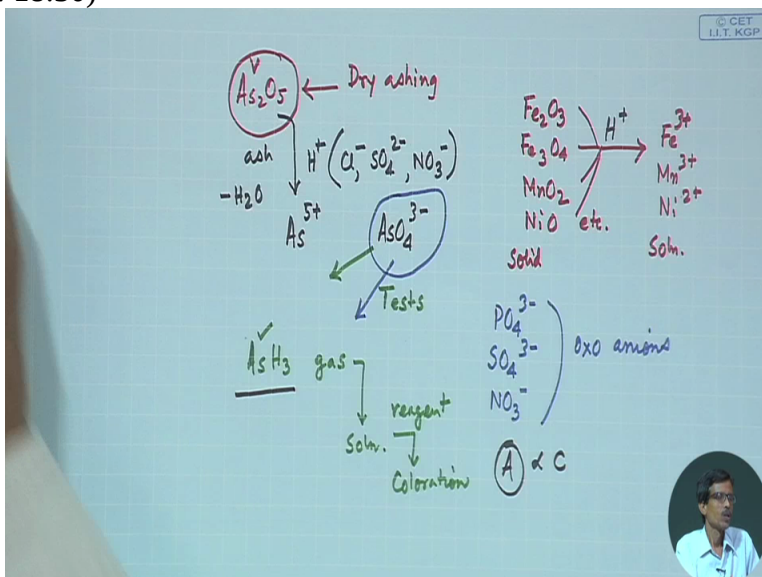 © CET
I.I.T. KGP
As₂O₅ ← Dry ashing
ash
-H₂O
H⁺ (Cl⁻, SO₄²⁻, NO₃⁻)
As⁵⁺
AsO₄³⁻
Tests
AsH₃ gas
Soln.
reagent
Coloration
Fe₂O₃
Fe₃O₄
MnO₂
NiO etc.
Solid
H⁺
Fe³⁺
Mn³⁺
Ni²⁺
Soln.
PO₄³⁻
SO₄³⁻
NO₃⁻
oxo anions
A ∝ C